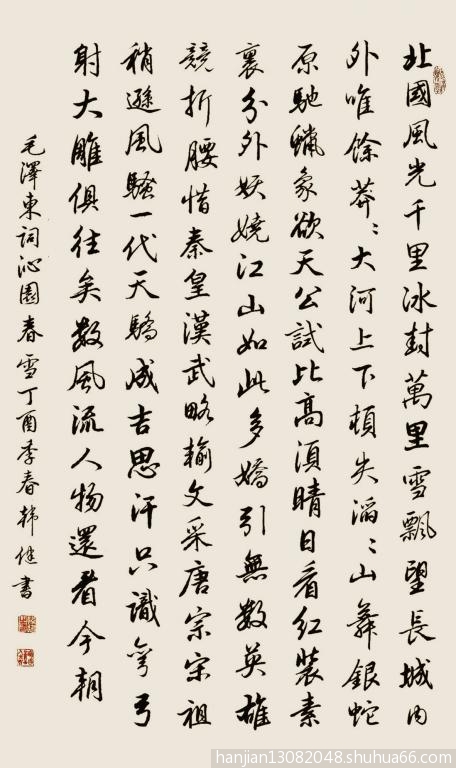 北國風光千里冰封萬里雪飄望長城内
外唯餘莽〻大河上下頓失滔〻山舞銀蛇
原馳蠟象欲天公試比高須晴日看紅裝素
裹分外妖嬈江山如此多嬌引無數英雄
競折腰惜秦皇漢武略輸文采唐宗宋祖
稍遜風騷一代天驕成吉思汗只識彎弓
射大雕俱往矣數風流人物還看今朝
毛澤東詞沁園春雪丁酉季春韩健書
hanjian13082048.shuhua66.com